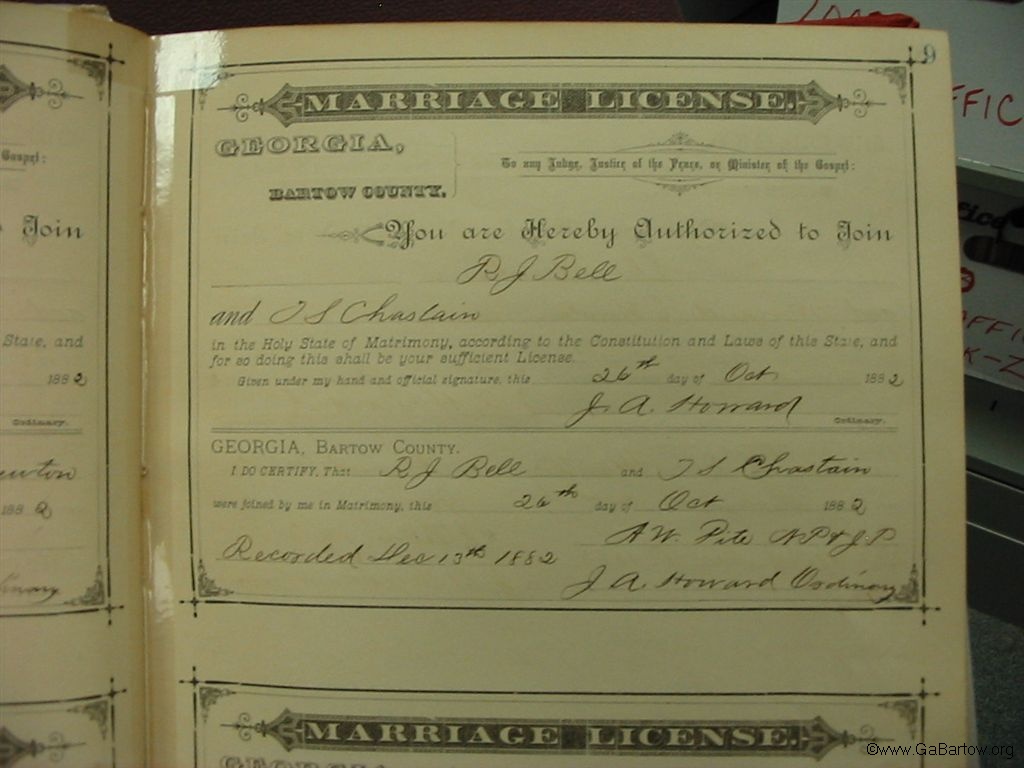 9
MARRIAGE LICENSE.
GEORGIA,
BARTOW COUNTY.
To any Judge, Justice of the Peace, or Minister of the Gospel:
You are Hereby Authorized to Join
R J Bell
and T S Chastain
in the Holy State of Matrimony, according to the Constitution and Laws of this State, and
for so doing this shall be your sufficient License.
Given under my hand and official signature, this 26th day of Oct 1882
J. A. Howard Ordinary.
GEORGIA, BARTOW COUNTY.
I DO CERTIFY, That R J Bell and T S Chastain
were joined by me in Matrimony, this 26th day of Oct 1882
A W. Pite NP & J.P
Recorded Dec 13th 1882
J A. Howard Ordinary
MARRIAGE LICENSE.
GEORGIA
Gospel:
Join
State, and
1882
Ordinary.
1882
FFIC
©www.GaBartow.org